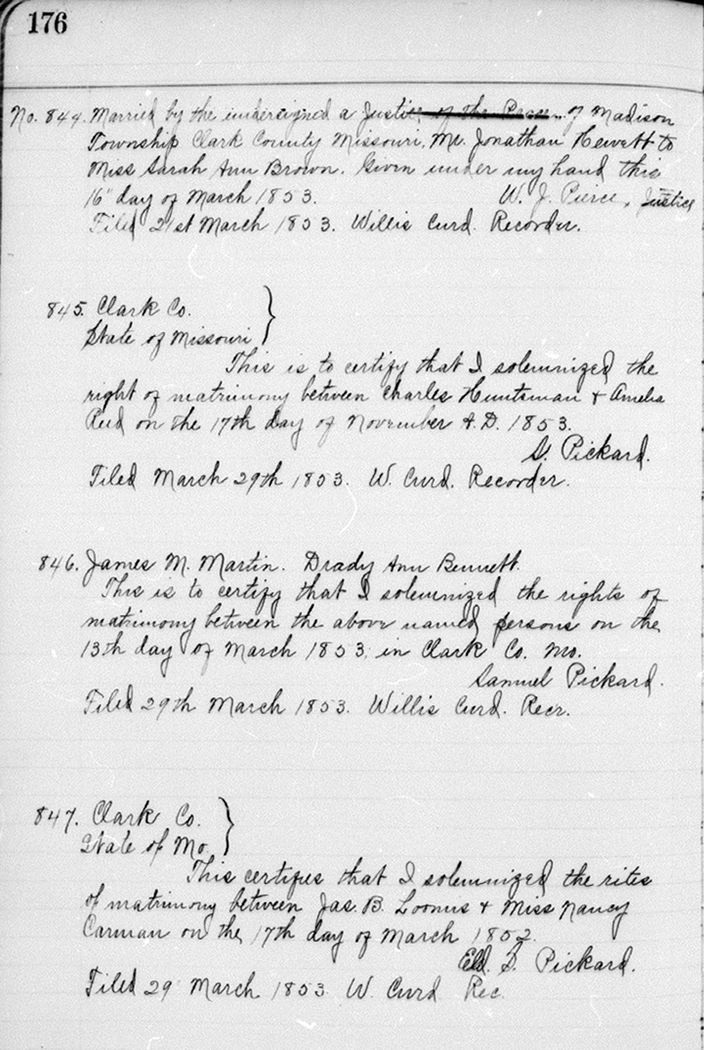 176
No. 844. Married by the undersigned a Justice of the Peace of Madison
Township Clark County Missouri, Mr. Jonathan Hewett to
Miss Sarah Ann Brown. Given under my hand this
16" day of March 1853. W. J. Pierce, Justice
Filed 21st March 1853. Willis Curd. Recorder.
845. Clark Co. }
State of Missouri
This is to certify that I solemnized the
right of matrimony between Charles Huntsman & Amelia
Reed on the 17th day of November A.D. 1853.
S. Pickard.
Filed March 29th 1853. W. Curd. Recorder.
846. James M. Martin. Drady Ann Bennett.
This is to certify that I solemnized the rights of
matrimony between the above named persons on the
13th day of March 1853, in Clark Co. Mo.
Samuel Pickard.
Filed 29th March 1853. Willis Curd. Recr.
847. Clark Co. }
State of Mo.
This certifies that I solemnized the rites
of matrimony between Jas. B. Loomis & Miss Nancy
Carman on the 17th day of March 1852.
Eld. S. Pickard.
Filed 29 March 1853. W. Curd Rec.